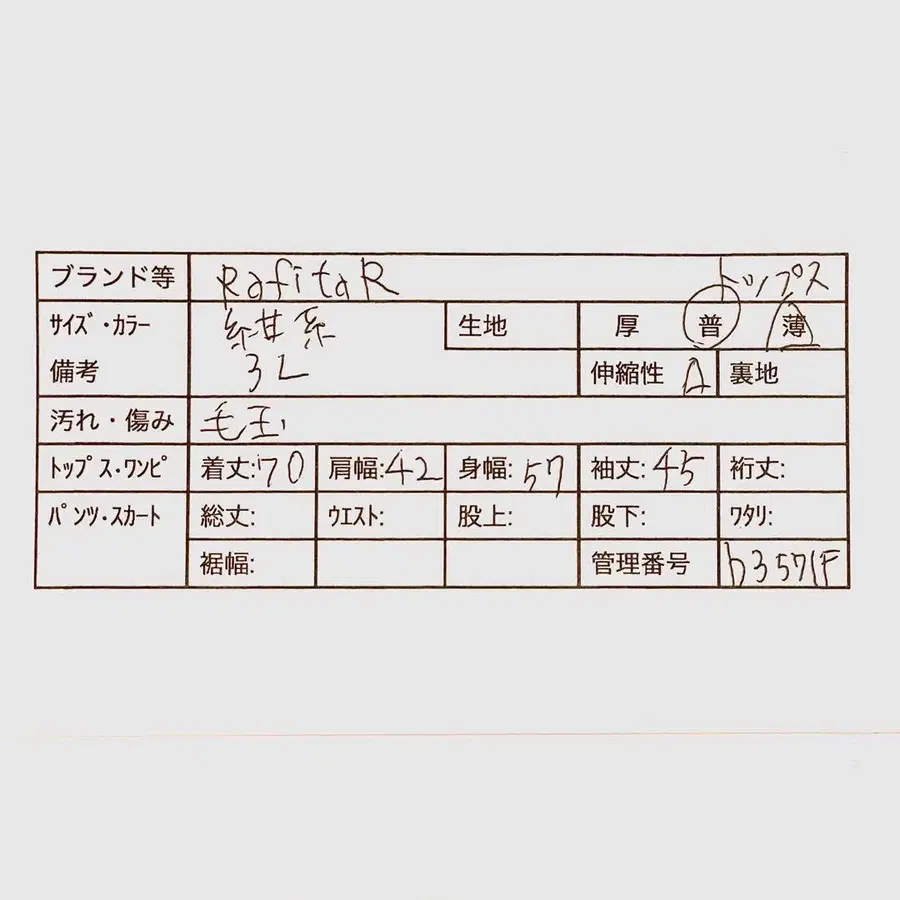 ブランド等 RafitaR トップス
サイズ・カラー 紺系 生地 厚 普 薄
備考 3L 伸縮性 △ 裏地
汚れ・傷み 毛玉
トップス・ワンピ 着丈:70 肩幅:42 身幅:57 袖丈:45 裄丈:
パンツ・スカート 総丈: ウエスト: 股上: 股下: ワタリ:
裾幅: 管理番号